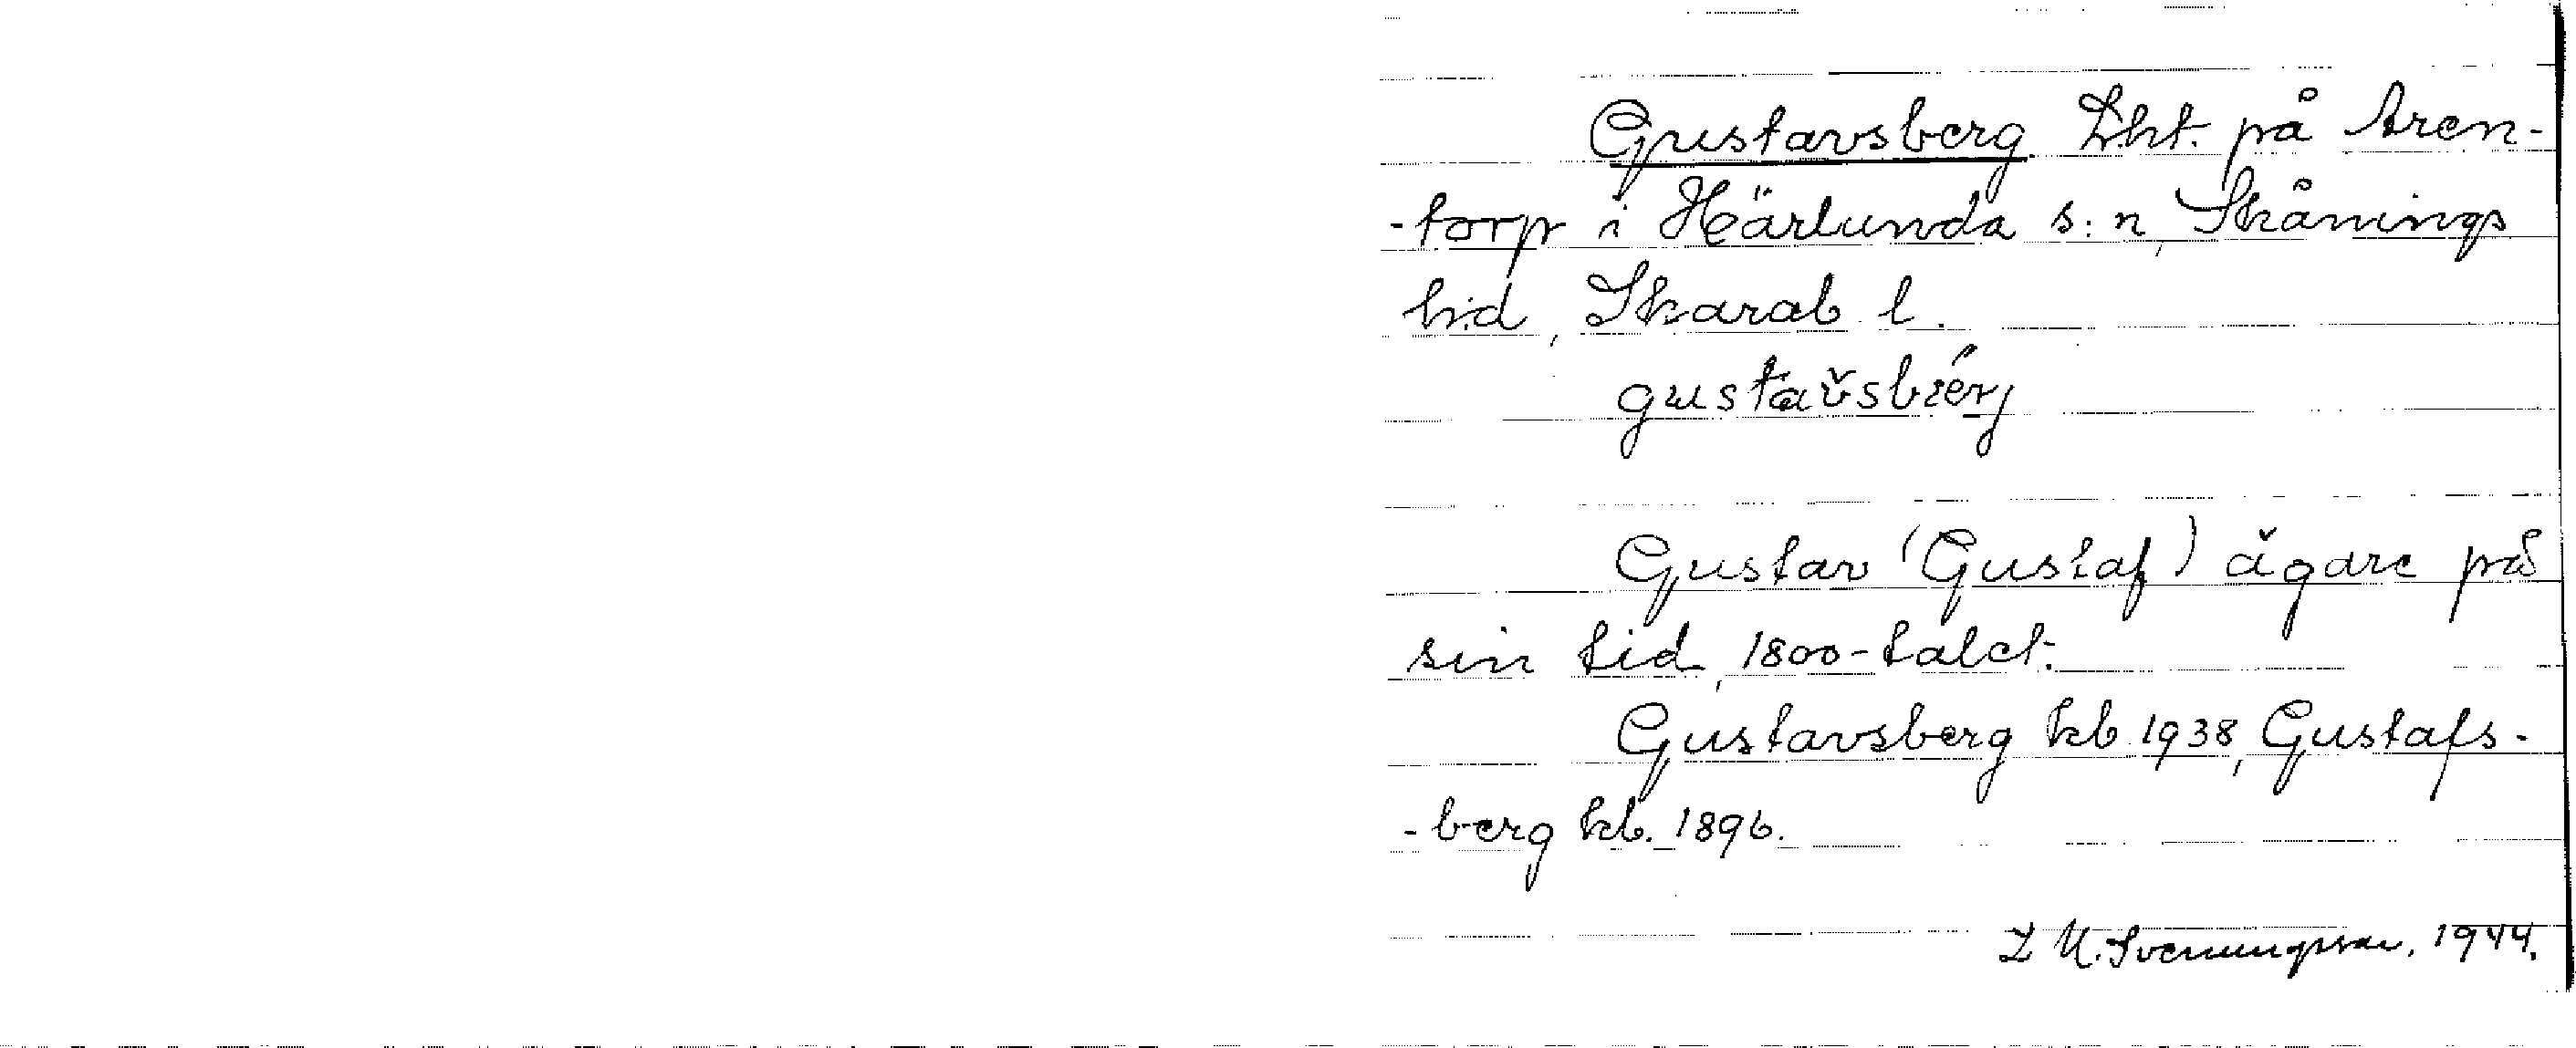 Gustavsberg. Lht. på Aren-
-torp i Härlunda s:n, Skånings
hd, Skarab. l.
gustavsbærj
Gustav (Gustaf) ägare på
sin tid, 1800-talet.
Gustavsberg kb 1938, Gustafs-
-berg kb. 1896.
L M. Svenungsson, 1944.